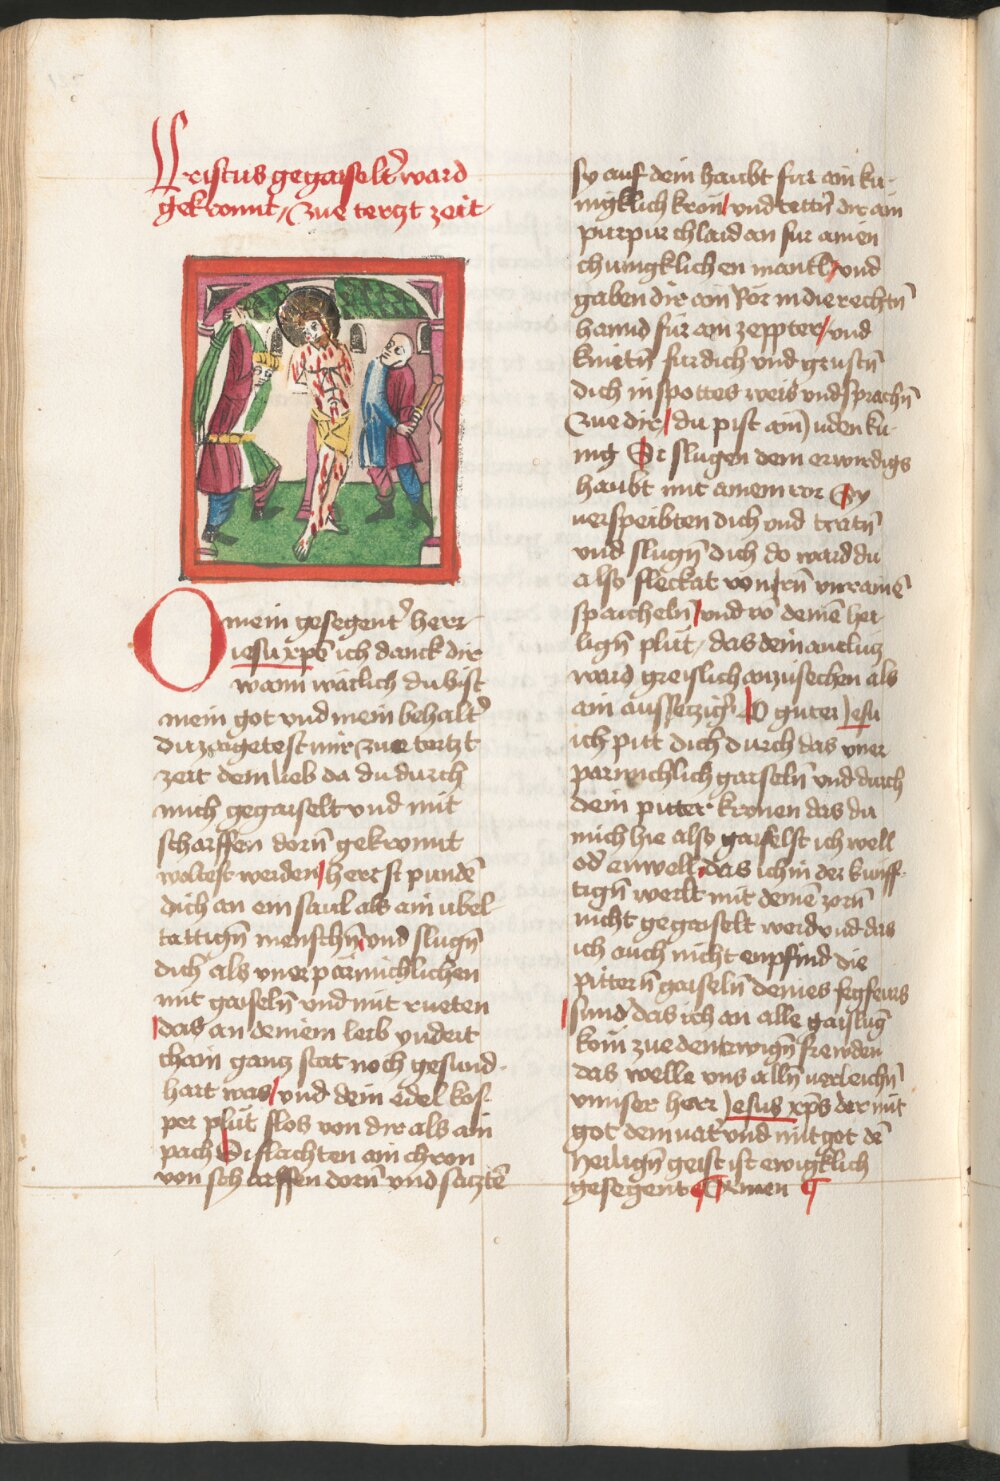 Cristus gegaiselt ward
gekronnt / Zue tertzt zeit
O mein gesegent' herr
iesu xpe ich danck dir
wann wärlich du bist
mein got vnd mein behalt'
du zaigetest mir Zue tertzt
zeit dein lieb da du durch
mich gegaiselt vnd mit
scharffen dorn̄ gekronnt
woltest werden / herr st pundē
dich an ein saul als ain vbel
tattign̄ menschn̄ vnd slugn̄
dich als vnerpärmchlichen
mit gaiseln̄ vnd mit rueten
das an deinem leib vndert
chain gantz stat noch gesund
hart was / vnd dein edel kos
per plüt flos von dir als ain
pach Si flachten ain chron
von scharffen dorn̄ vnd satztē
sy auf dein haubt fur ain ku
nigklich kron / vnd tettn̄ dir ain
purpur chlaid an fur ainen
chunigklichen mantl / vnd
gaben dir ain Rör in die rechtn̄
hannd für ain zeppter / vnd
knietn̄ fur dich vnd grustn̄
dich in spottes weis vnd sprachn̄
Zue dir / du pist ain Juden ku
nig Sr slugen dein erwirdigs
haubt mit ainem ror Sy
verspeibten dich vnd tratn̄
vnd slugn̄ dich do ward du
also fleckat von irn̄ vnrainē
spaicheln̄ / vnd vō deinē hei
lign̄ plüt / das dein antlutz
ward greislich anzusechen als
ain aussetzig' / O guter Jesu
ich pitt dich durch das vner
parmchlich gaiseln̄ vnd durch
dein pitter kronen das du
mich hie also gaiselst ich well
od enwell / das ich in der kunff
tign̄ werlt mit deinē zorn̄
nicht gegaiselt werd vnd das
ich auch nicht enpfind die
pittern̄ gaiseln̄ deines fegfeurs
sund das ich an alle gaisluḡ
kom zue den ewign̄ frewden
das welle vns alln̄ verleichn̄
vnnser herr Jesus xps der mit
got dem vat' vnd mit got dē
heilign̄ geist ist ewigklich
gesegent Amen